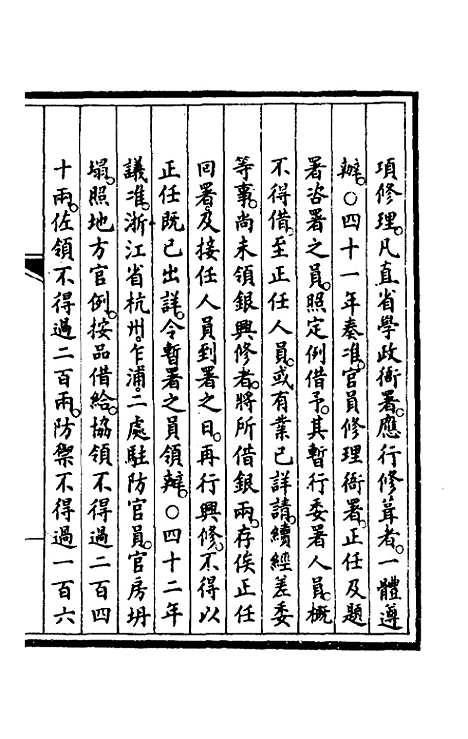 項修理。凡直省學政衙署。應行修葺者。一體遵
辦。○四十一年奏准。官員修理衙署。正任及題
署咨署之員。照定例借予。其暫行委署人員。概
不得借。至正任人員。或有業已詳請。續經差委
等事。尚未領銀興修者。將所借銀兩。存俟正任
回署。及接任人員到署之日。再行興修。不得以
正任既已出詳。令暫署之員領辦。○四十二年
議准。浙江省杭州乍浦二處駐防官員。官房坍
塌。照地方官例。按品借給。協領不得過二百四
十兩。佐領不得過二百兩。防禦不得過一百六